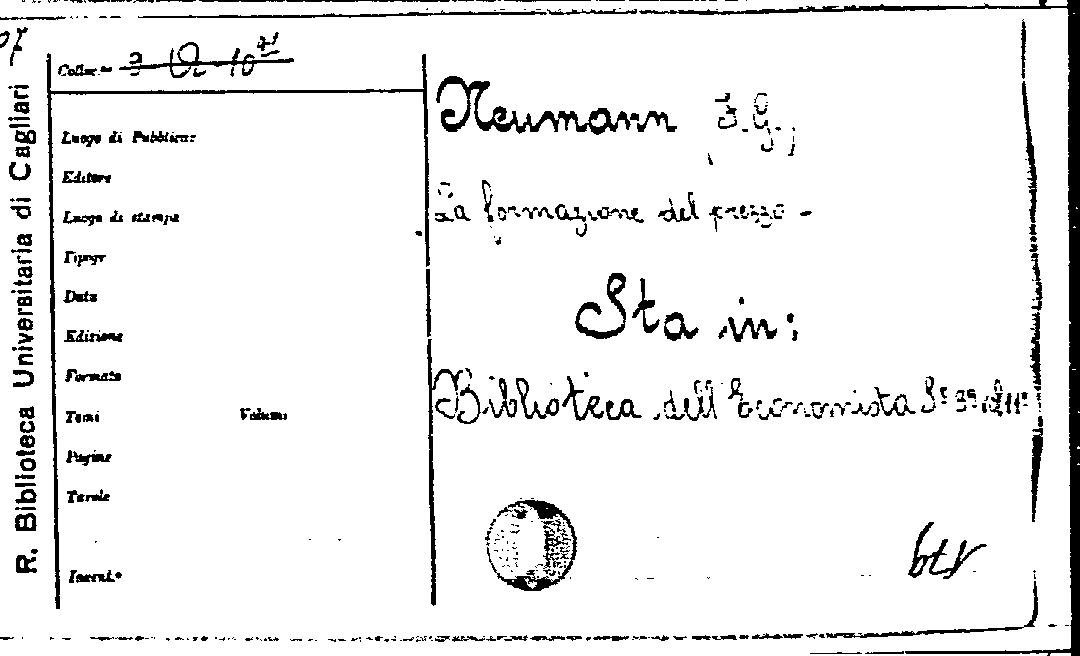 R. Biblioteca Universitaria di Cagliari
Colloc.ne 3 10 41
Luogo di Pubblicaz
Editore
Luogo di stampa
Tipogr
Data
Edizione
Formato
Tomi Volumi
Pagine
Tavole
Invent.º
Neumann F. G.,
La formazione del prezzo -
Sta in:
Biblioteca dell'Economista S.e 3ª vol 11º